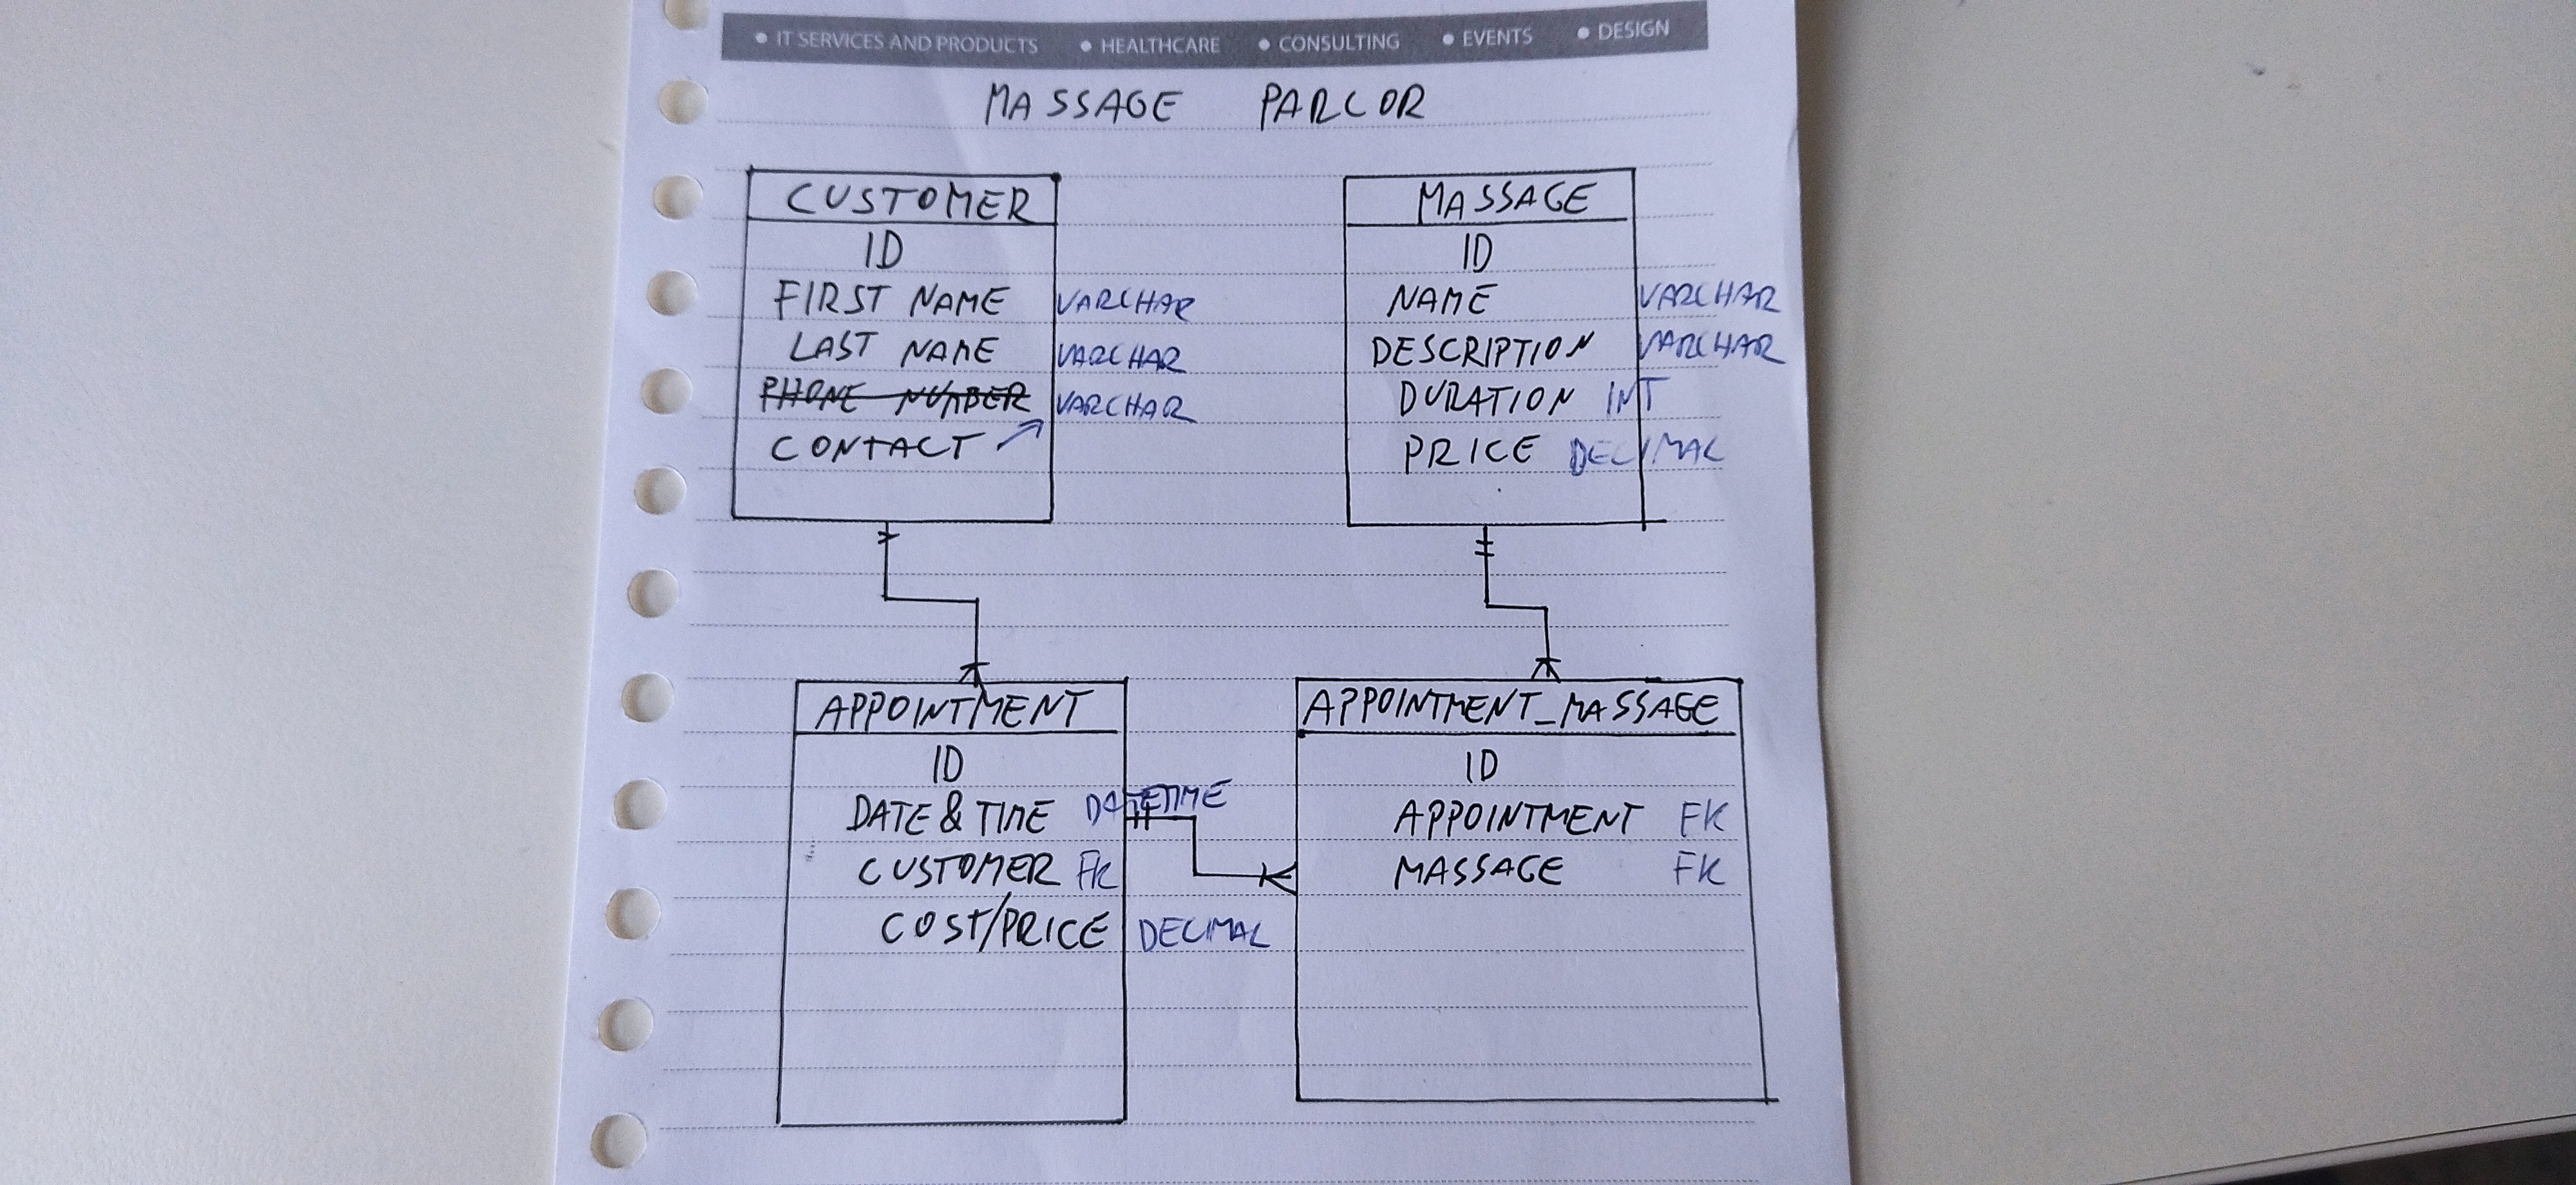 • IT SERVICES AND PRODUCTS • HEALTHCARE • CONSULTING • EVENTS • DESIGN
MASSAGE PARLOR
CUSTOMER
ID
FIRST NAME VARCHAR
LAST NAME VARCHAR
PHONE NUMBER VARCHAR
CONTACT
MASSAGE
ID
NAME VARCHAR
DESCRIPTION VARCHAR
DURATION INT
PRICE DECIMAL
APPOINTMENT
ID
DATE & TIME DATETIME
CUSTOMER FK
COST/PRICE DECIMAL
APPOINTMENT_MASSAGE
ID
APPOINTMENT FK
MASSAGE FK